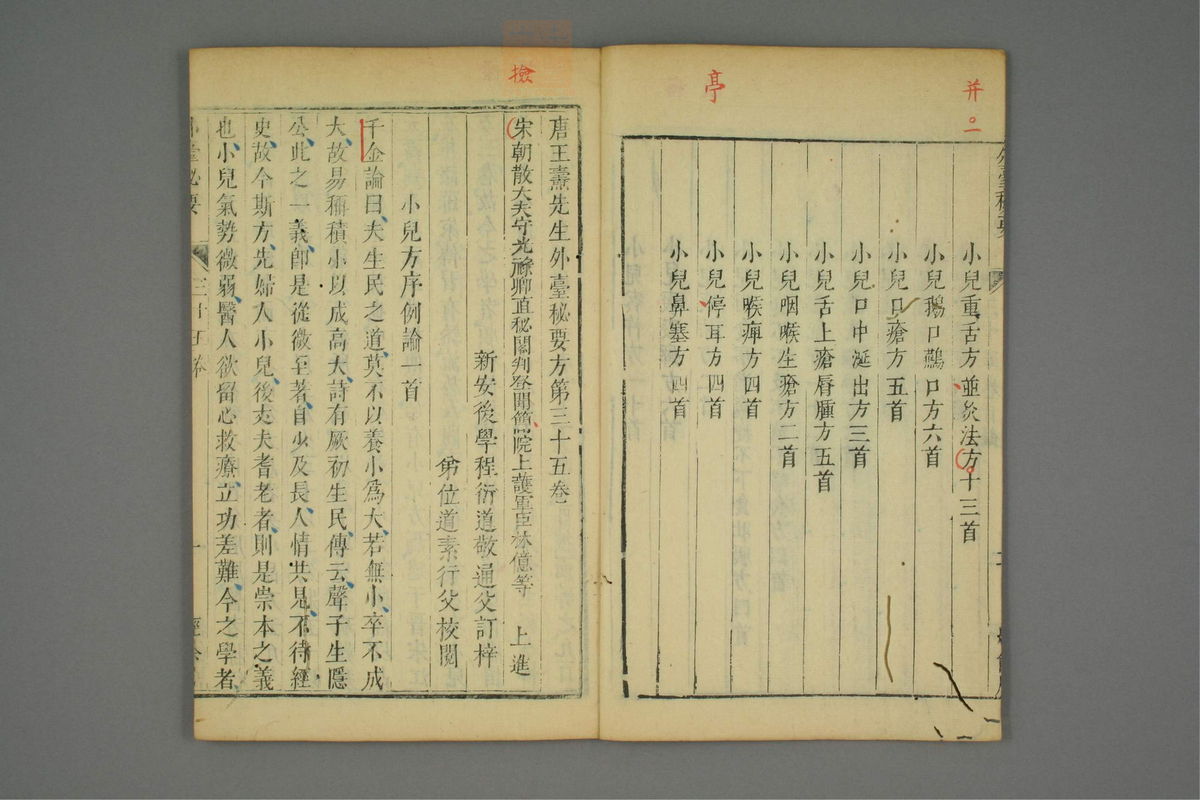 并
亭
小兒重舌方並灸法方十三首
小兒鵝口鷰口方六首
小兒口瘡方五首
小兒口中涎出方三首
小兒舌上瘡唇腫方五首
小兒咽喉生瘡方二首
小兒喉痺方四首
小兒停耳方四首
小兒鼻塞方四首
撿
唐王燾先生外臺秘要方第三十五卷
宋朝散大夫守光祿卿直秘閣判登聞簡院上護軍臣林億等 上進
新安後學程衍道敬通父訂梓
弟位道素行父校閱
小兒方序例論一首
千金論曰夫生民之道莫不以養小為大若無小卒不成
大故易稱積小以成高大詩有厥初生民傳云聲子生隱
公此之一義即是從微至著自少及長人情共見不待經
史故今斯方先婦人小兒後丈夫耆老者則是崇本之義
也小兒氣勢微弱醫人欲留心救療立功差難今之學者
三十五卷